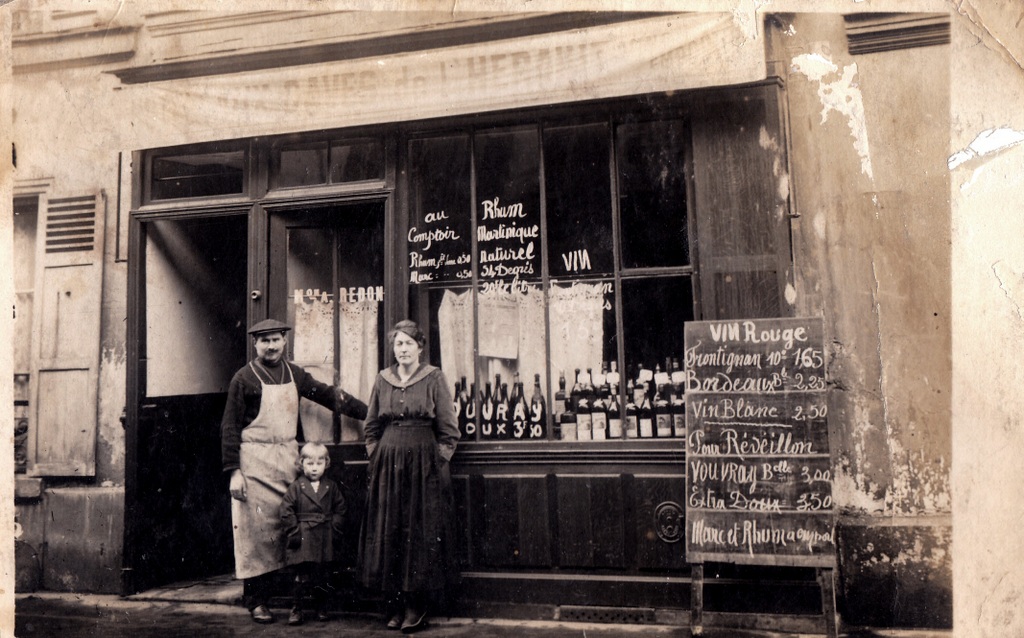 CAVES de l'HERAULT
au
Comptoir
Rhum
Marc
0,50
Rhum
Martinique
naturel
54 Degrés
VIN
Mon A. REDON
VOUVRAY
DOUX 3f50
VIN Rouge
Frontignan 10° 1,65
Bordeaux Blle 2,25
Vin Blanc 2,50
Pour Réveillon
VOUVRAY Blle 3,00
Extra Doux 3,50
Marc et Rhum a emport